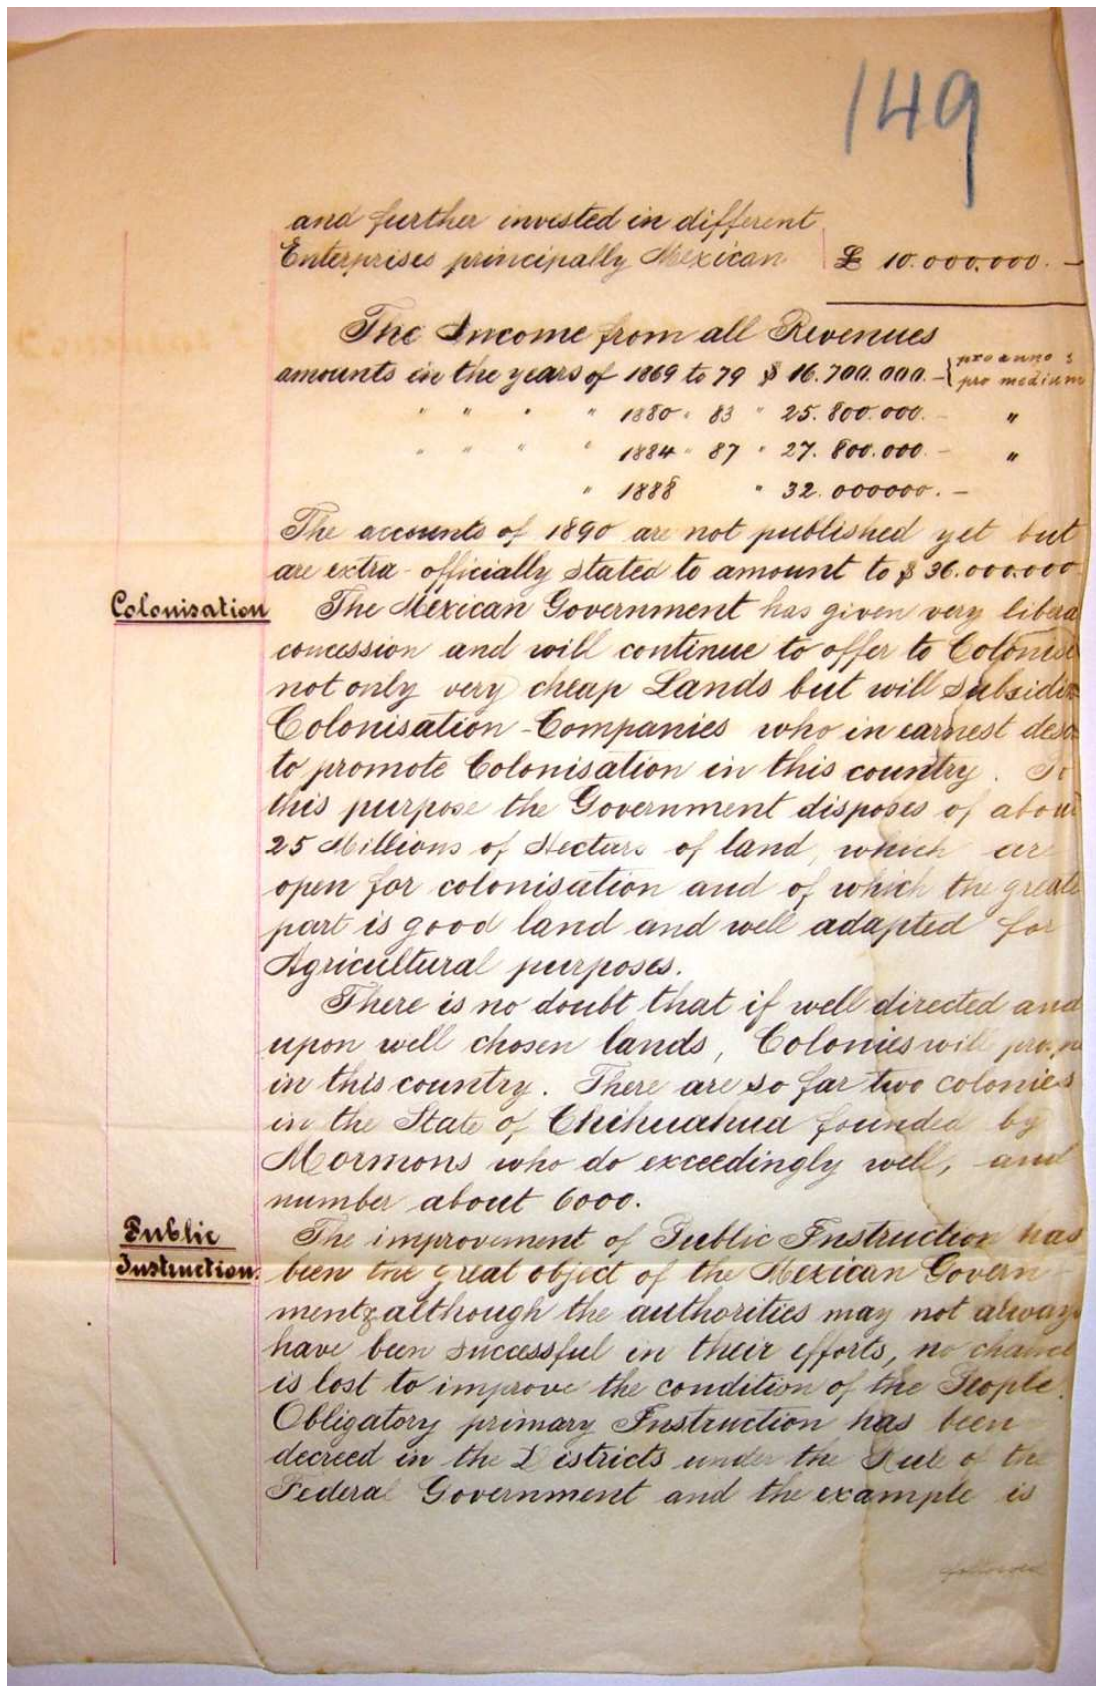 149
and further invested in different
Enterprises principally Mexican £ 10.000.000. —
The Income from all Revenues
amounts in the years of 1869 to 79 $ 16.700.000. — { pro anno &
pro medium
" " " " 1880 " 83 " 25.800.000. — "
" " " " 1884 " 87 " 27.800.000. — "
" 1888 " 32.000000. —
The accounts of 1890 are not published yet but
are extra-officially stated to amount to $ 36.000.000
Colonisation The Mexican Government has given very libera
concession and will continue to offer to Colonis
not only very cheap Lands but will subsidi
Colonisation-Companies who in earnest desi
to promote Colonisation in this country. To
this purpose the Government disposes of about
25 Millions of Hectars of land, which ar
open for colonisation and of which the greate
part is good land and well adapted for
Agricultural purposes.
There is no doubt that if well directed and
upon well chosen lands, Colonies will
in this country. There are so far two colonies
in the State of Chihuahua founded by
Mormons who do exceedingly well, and
number about 6000.
Public The improvement of Public Instruction has
Instruction. been the great object of the Mexican Govern-
ment & although the authorities may not alway
have been successful in their efforts, no chance
is lost to improve the condition of the People.
Obligatory primary Instruction has been
decreed in the Districts under the Rule of the
Federal Government and the example is
followed